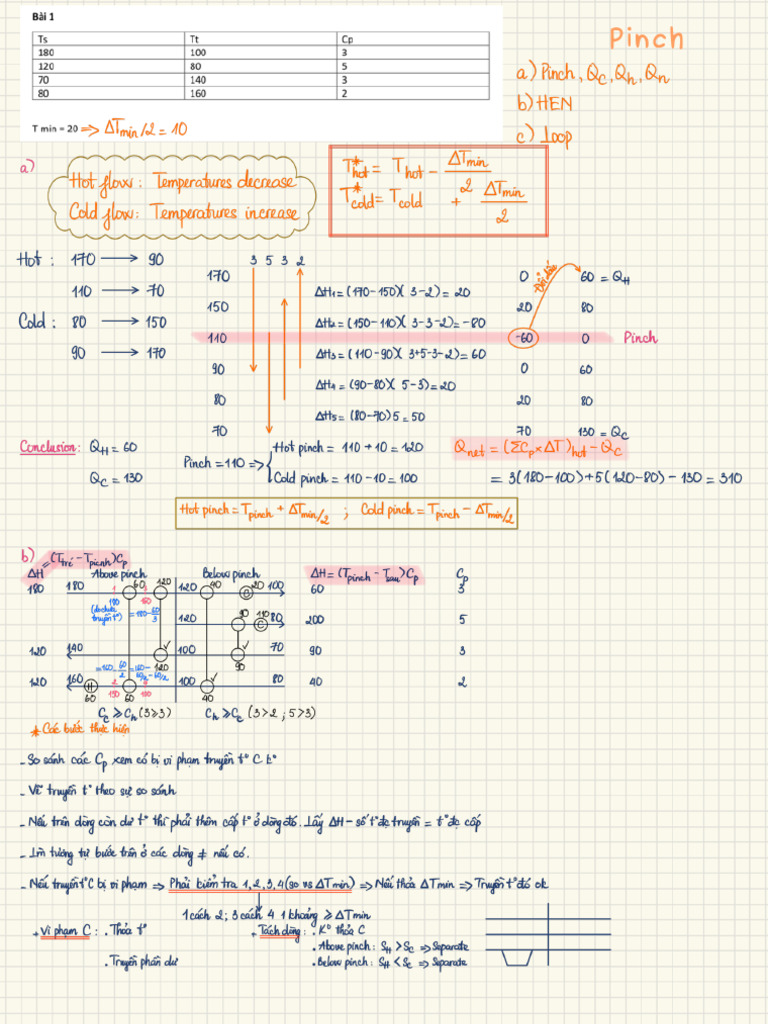 Bài 1
Pinch
Ts Tt Cp
180 100 3
120 80 5
70 140 3
80 160 2
T min = 20 => ΔTmin/2 = 10
a) Pinch, Qc, Qh, Qn
b) HEN
c) Loop
a)
Hot flow: Temperatures decrease
Cold flow: Temperatures increase
T*hot = Thot - ΔTmin/2
T*cold = Tcold + ΔTmin/2
Hot: 170 → 90
110 → 70
Cold: 80 → 150
90 → 170
3 5 3 2
170 0 60 = QH
ΔH1 = (170-150)(3-2) = 20
Đổi dấu
150 20 80
ΔH2 = (150-110)(3-3-2) = -80
110 -60 0 Pinch
ΔH3 = (110-90)(3+5-3-2) = 60
90 0 60
ΔH4 = (90-80)(5-3) = 20
80 20 80
ΔH5 = (80-70)5 = 50
70 70 130 = Qc
Conclusion: QH = 60
Qc = 130
Pinch = 110 =>
Hot pinch = 110 + 10 = 120
Cold pinch = 110 - 10 = 100
Qnet = (ΣCp×ΔT)hot - Qc
= 3(180-100) + 5(120-80) - 130 = 310
Hot pinch = Tpinch + ΔTmin/2 ; Cold pinch = Tpinch - ΔTmin/2
b)
ΔH = (Ttrc - Tpicnh)Cp
Above pinch Below pinch ΔH = (Tpinch - Tsau)Cp Cp
180 180 1 60 3 120 120 40 20 C 100 60 3
180 160
(do chưa truyền t°) = 180 - 60/3
120 90 110 C 80 200 5
120 140 120 100 90 70 90 3
= 160 - 60/2
120 160 H 60 2 130 60 4 100 100 40 80 40 2
Cc ≥ Ch (3≥3) Ch ≥ Cc (3>2 ; 5>3)
* Các bước thực hiện
- So sánh các Cp xem có bị vi phạm truyền t° C k°
- Vẽ truyền t° theo sự so sánh
- Nếu trên dòng còn dư t° thì phải thêm cấp t° ở dòng đó. Lấy ΔH - số t° đc truyền = t° đc cấp
- Làm tương tự bước trên ở các dòng ≠ nếu có.
- Nếu truyền t° C bị vi phạm => Phải kiểm tra 1,2,3,4 (so vs ΔTmin) => Nếu thỏa ΔTmin => Truyền t° đó ok
1 cách 2; 3 cách 4 1 khoảng ≥ ΔTmin
+ Vi phạm C: . Thỏa t°
. Truyền phần dư
+ Tách dòng: . K° thỏa C
. Above pinch: SH > Sc => Separate
. Below pinch: SH < Sc => Separate